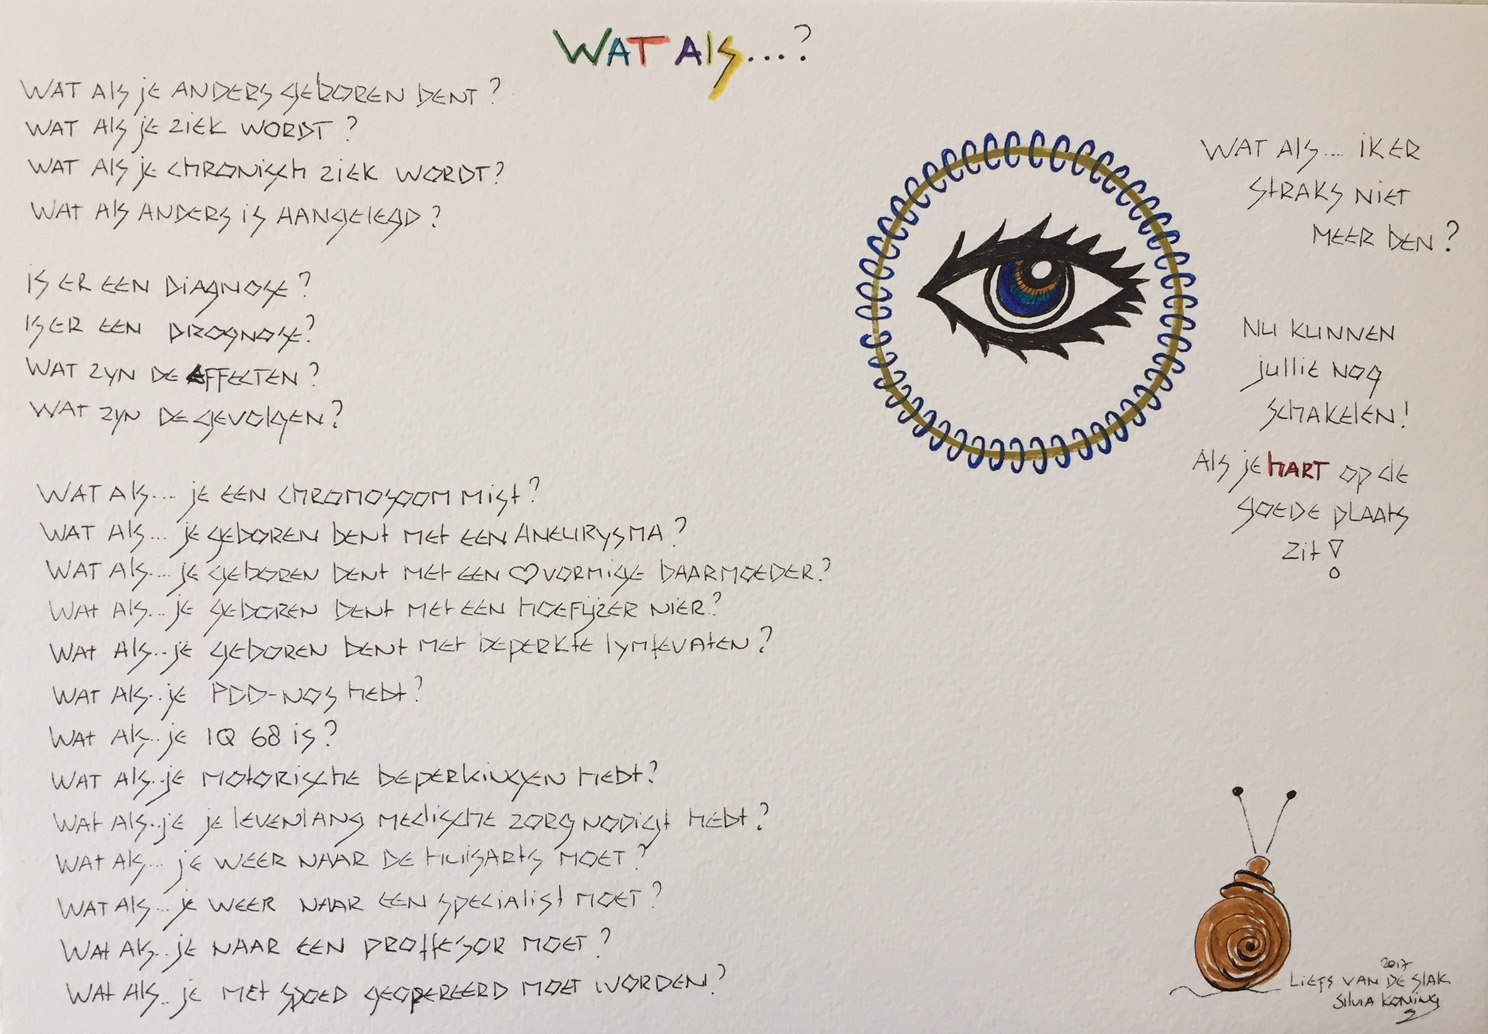 WAT Als...?
WAT Als je ANDERS geboren bent?
WAT Als je ziek WORDT?
WAT Als je chronisch ziek WORDT?
WAT Als ANDERS is AANgelegd?
is ER EEN DiAgnose?
is ER EEN
WAT zyn DE EFFECTEN?
WAT zyn DE gevolgen?
WAT Als.... je EEN chromosoom mist?
WAT Als... je geboren bent met EEN ANEURYSMA?
WAT Als.... je geboren bent met EEN ♡vormige baarmoeder?
WAT Als... je geboren bent met EEN hoefijzer NIER?
WAT Als... je geboren bent met beperkte lymfevaten?
WAT Als.. je PDD-NOS hebt?
WAT Als.. je IQ 68 is?
WAT Als.. je motorische beperkingen hebt?
WAT Als.. je je levenlang medische zorg nodigt hebt?
WAT Als... je WEER NAAR DE huisarts moet?
WAT Als... je WEER NAAR EEN specialist moet?
WAT Als.. je NAAR EEN proffesor moet?
WAT Als.. je met spoed geopereerd moet worden?
WAT Als.... IK ER
straks niet
MEER BEN?
NU KUNNEN
jullie nog
schakelen!
Als je HART op de
goede plaats
zit!
2017
Liefs van de slak
Silvia Koning